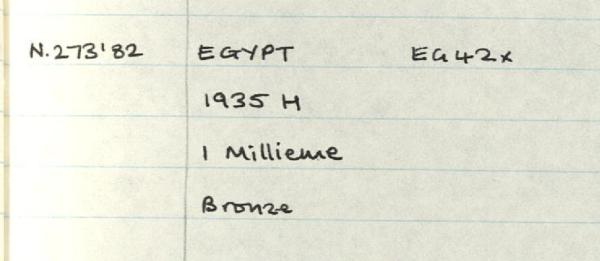 N.273'82 EGYPT EG42x
1935 H
1 Millieme
Bronze